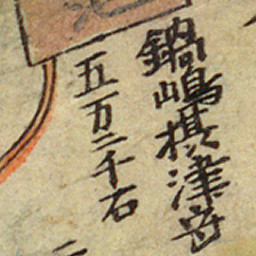 鍋嶋摂津守
五万二千石